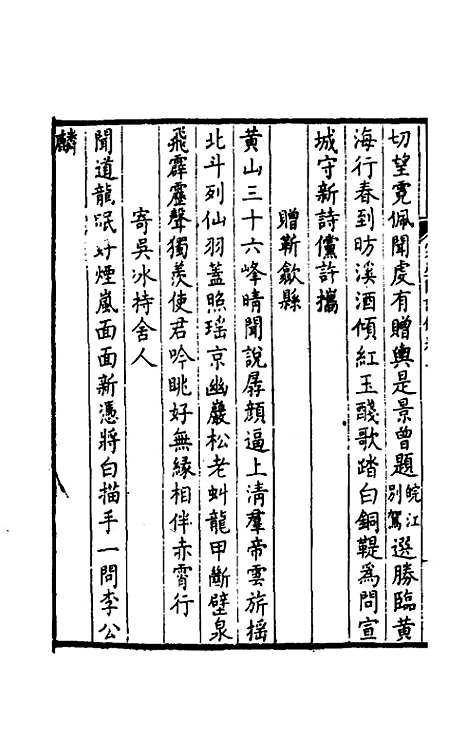 切望霓佩聞處有贈輿是景曾題皖江別駕選勝臨黃
海行春到昉溪酒傾紅玉醆歌踏白銅鞮爲問宣
城守新詩儻許攜
贈靳歙縣
黃山三十六峰晴聞說孱顏逼上清羣帝雲旂搖
北斗列仙羽蓋照瑤京幽巖松老虯龍甲斷壁泉
飛霹靂聲獨羨使君吟眺好無緣相伴赤霄行
寄吳冰持舍人
聞道龍眠好煙嵐面面新憑將白描手一問李公
麟